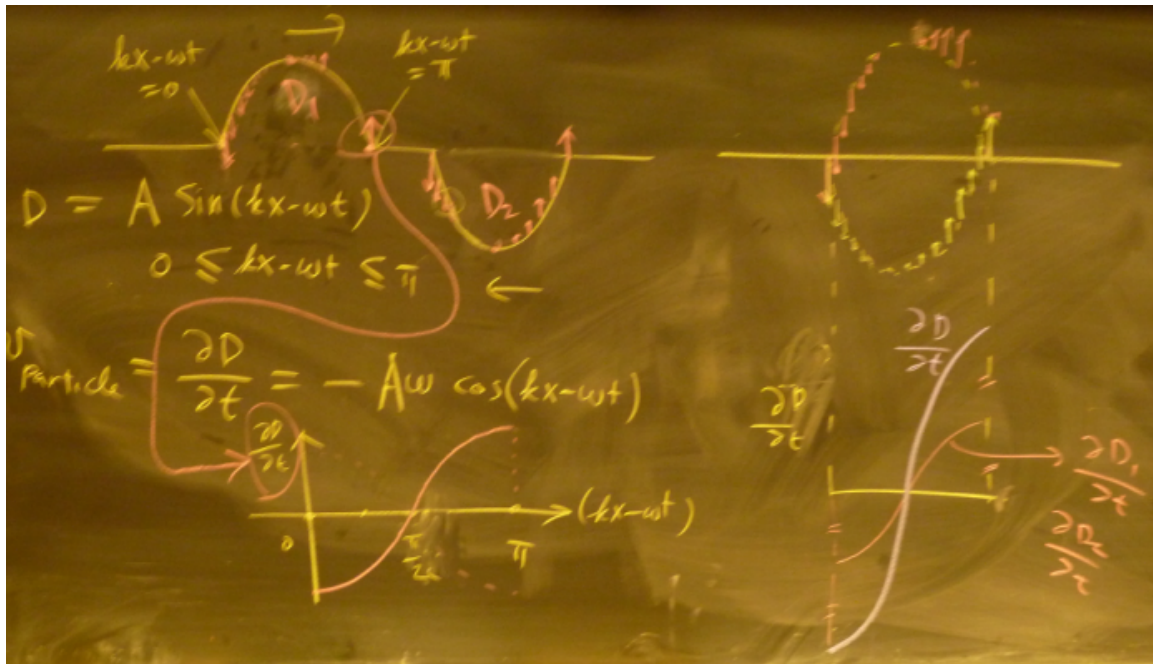 kx-ωt
=0
kx-ωt
=π
D₁
D₂
D = A Sin(kx-ωt)
0 ≤ kx-ωt ≤ π
v Particle = ∂D/∂t = - Aω cos(kx-ωt)
∂D/∂t
0
π/2
π
(kx-ωt)
∂D/∂t
∂D/∂t
∂D₁/∂t
∂D₂/∂t